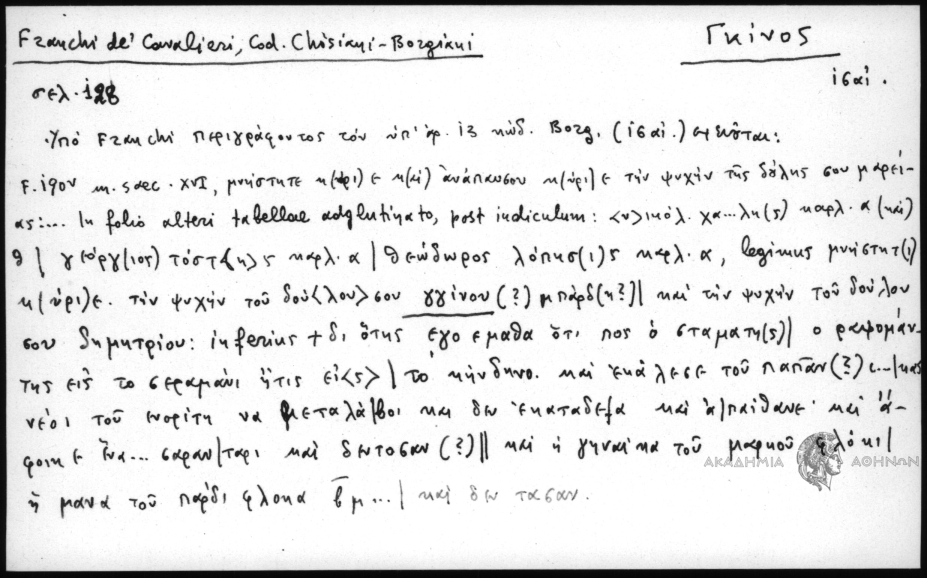 Franchi de' Cavalieri, Cod. Chisiani-Borgiani
Γκίνος
ιϛ αἰ.
σελ. 128
Ὑπὸ Franchi περιγράφοντος τὸν ὑπ' ἀρ. 13 κώδ. Borg. (ιϛ αἰ.) σημειοῦται:
F. 190v m. saec. XVI, μνήστητε κ(ύρι)ε κ(αὶ) ἀνάπαυσον κ(ύρι)ε τὴν ψυχὴν τῆς δούλης σου μαρεί-
ας:... In folio alteri tabellae adglutinato, post indiculum: <ν>ικόλ. χα...λη(ς) καρλ. α (καὶ)
θ | γεόργ(ιος) τόστ<η>ς καρλ. α | θεώδωρος λόπησ(ι)ς καρλ. α, legimus μνήστητ(ι)
κ(ύρι)ε. τὴν ψυχὴν τοῦ δού<λου> σου γγίνου (?) μπάρδ(η?) | καὶ τὴν ψυχὴν τοῦ δούλου
σου δημητρίου: inferius + δι ὅτης ἐγο ἐμαθα ὅτι πος ὁ σταματη(ς) | ο ραφομάν-
της εἰς το σεραμάνι ἥτις εἰ<ς> | τὸ κήνδηνο. καὶ ἐκάλεσε τοῦ παπᾶν (?) ...
νέοι τοῦ ενορίτη να μεταλά|βοι και δεν ἐκαταδεξα καὶ ἀ|παίθανε καὶ ἀ-
φοικε ἕνα... σαραν|ταρι καὶ δεντοσαν (?) || καὶ ἡ γηναίκα τοῦ μαρκοῦ φλόκι |
ἡ μανα τοῦ παρδι φλοκα β̅μ...| καὶ δεν τασαν.
ΑΚΑΔΗΜΙΑ ΑΘΗΝΩΝ